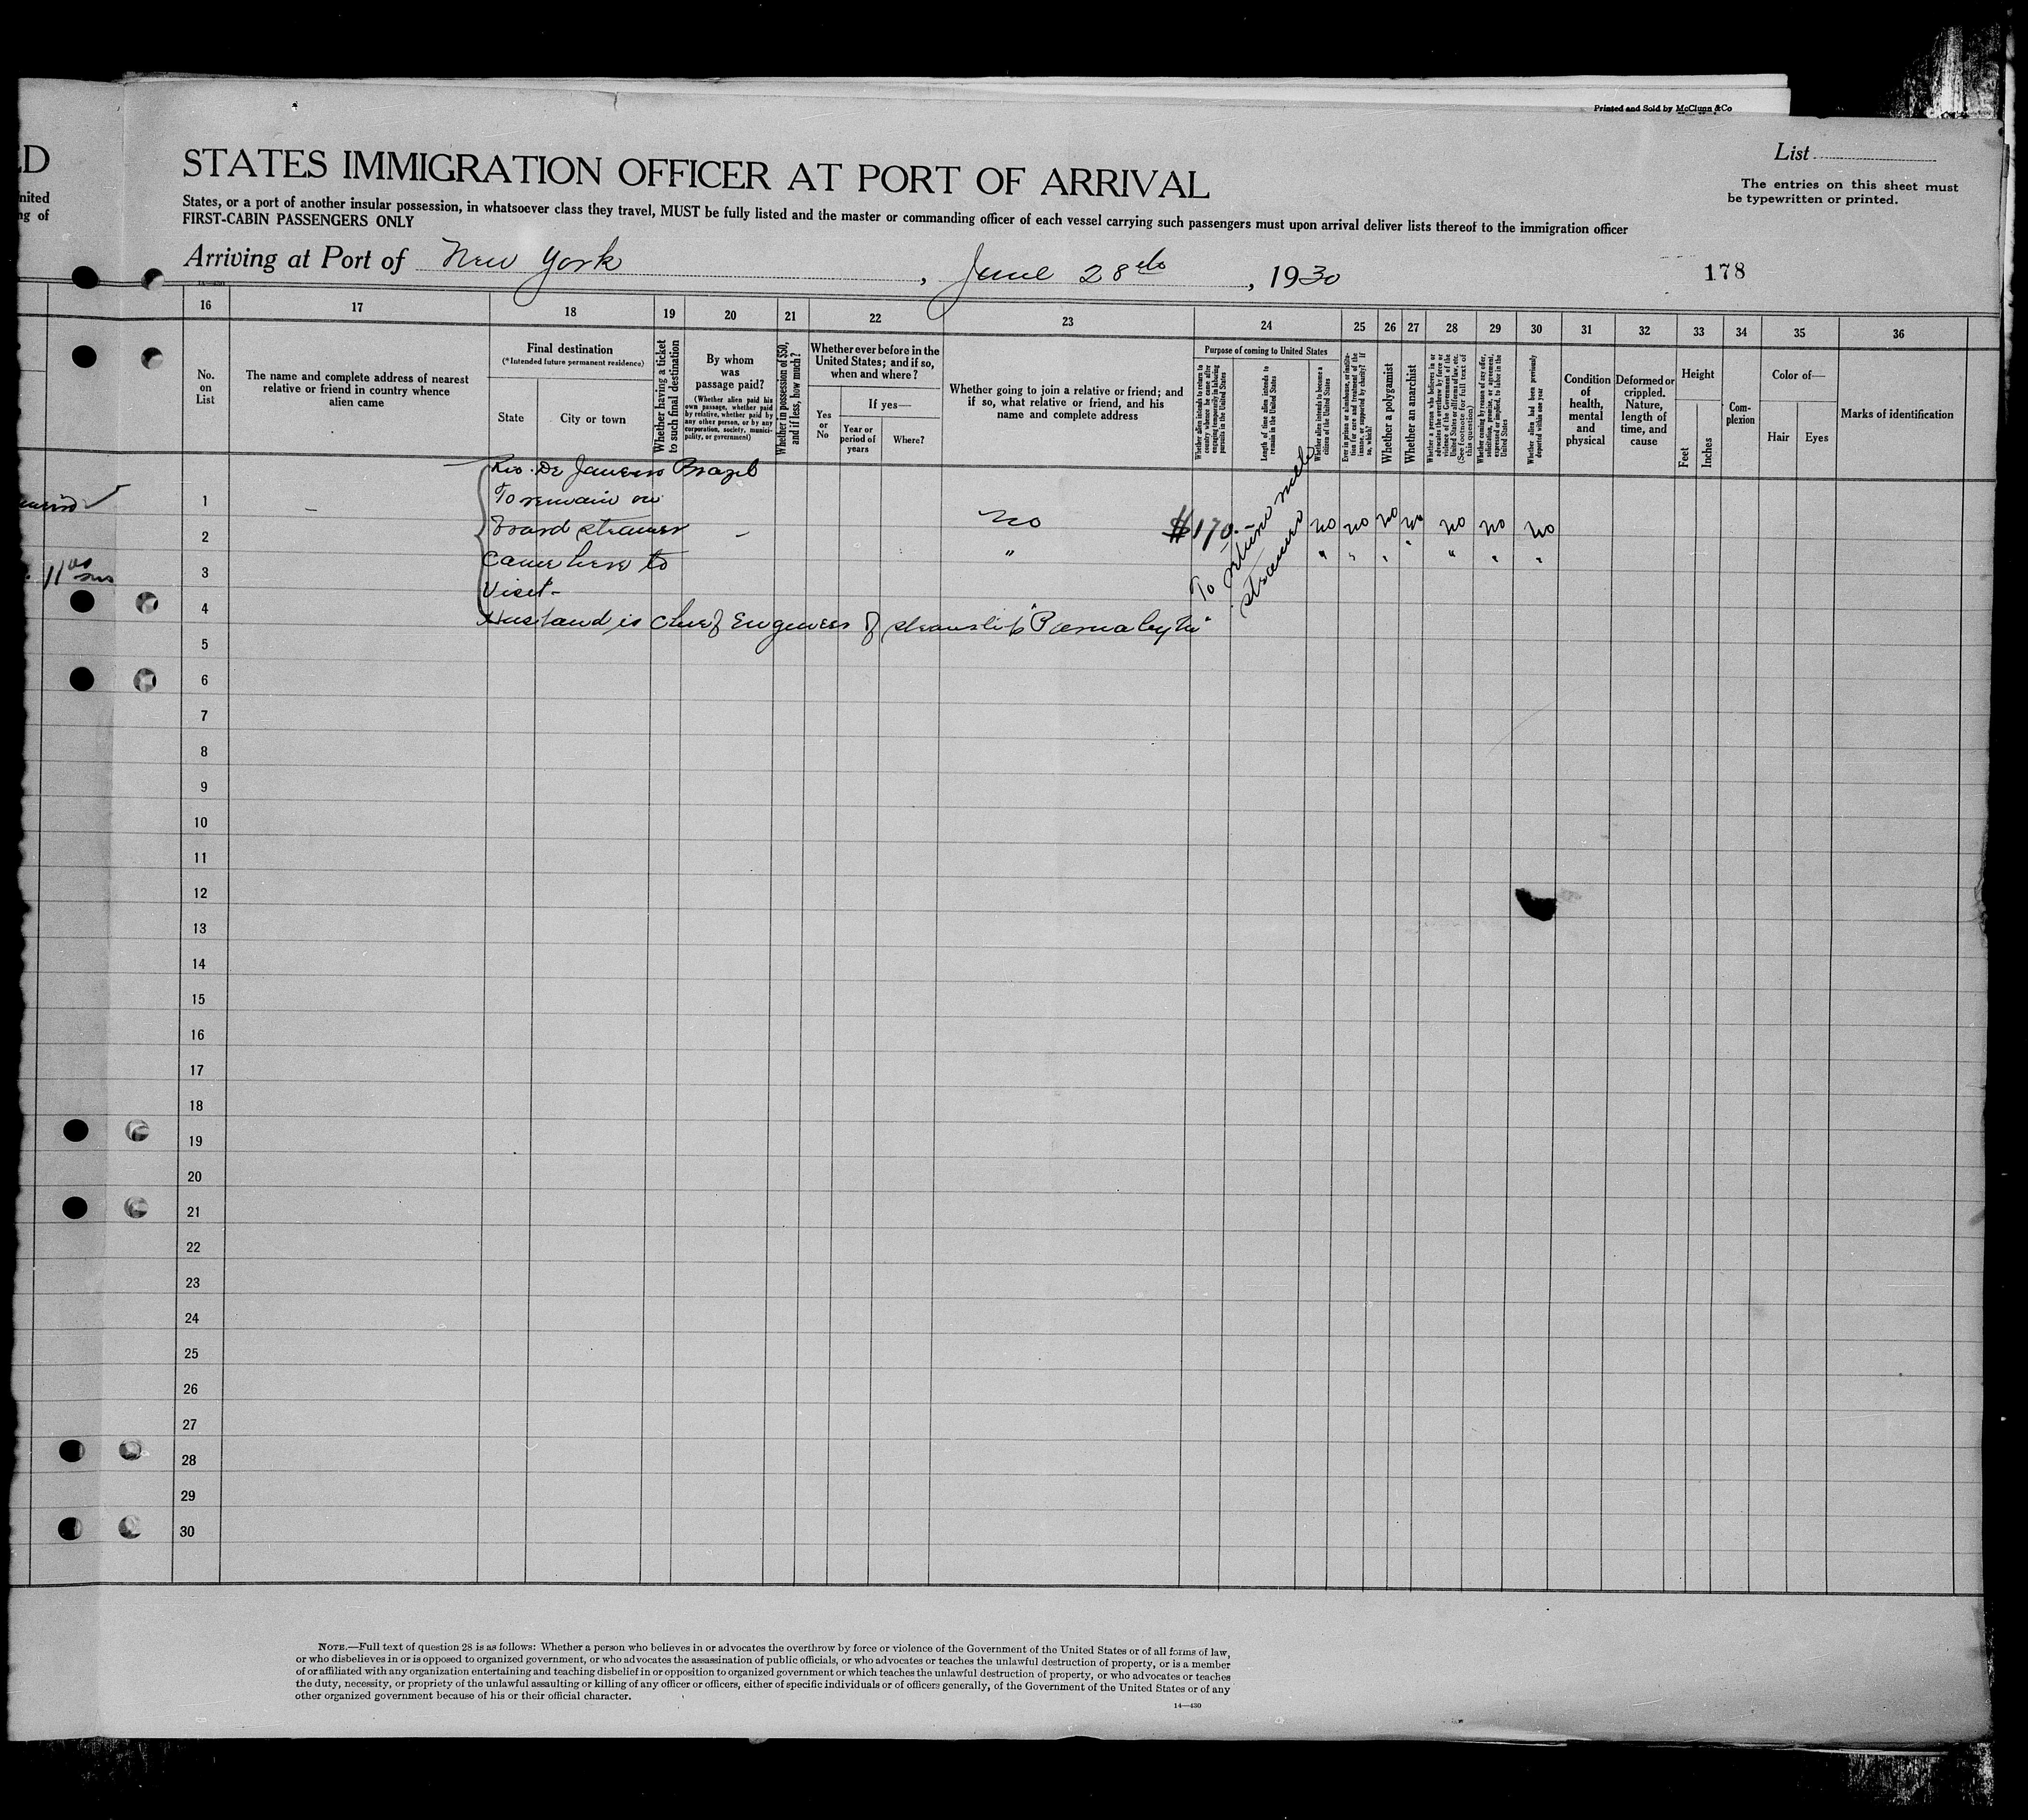 Printed and Sold by McClunn & Co
ED
STATES IMMIGRATION OFFICER AT PORT OF ARRIVAL
List
The entries on this sheet must
be typewritten or printed.
nited
ng of
States, or a port of another insular possession, in whatsoever class they travel, MUST be fully listed and the master or commanding officer of each vessel carrying such passengers must upon arrival deliver lists thereof to the immigration officer
FIRST-CABIN PASSENGERS ONLY
Arriving at Port of New York, June 28th, 1930
178
16 17 18 19 20 21 22 23 24 25 26 27 28 29 30 31 32 33 34 35 36
No.
on
List
The name and complete address of nearest
relative or friend in country whence
alien came
Final destination
(*Intended future permanent residence)
State
City or town
Whether having a ticket
to such final destination
By whom
was
passage paid?
(Whether alien paid his
own passage, whether paid
by relative, whether paid by
any other person, or by any
corporation, society, munici-
pality, or government)
Whether in possession of $50,
and if less, how much?
Whether ever before in the
United States; and if so,
when and where?
Yes
or
No
If yes—
Year or
period of
years
Where?
Whether going to join a relative or friend; and
if so, what relative or friend, and his
name and complete address
Purpose of coming to United States
Whether alien intends to return to
country whence he came after
engaging temporarily in laboring
pursuits in the United States
Length of time alien intends to
remain in the United States
Whether alien intends to become a
citizen of the United States
Ever in prison or almshouse, or institu-
tion for care and treatment of the
insane, or supported by charity? If
so, which?
Whether a polygamist
Whether an anarchist
Whether a person who believes in or
advocates the overthrow by force or
violence of the Government of the
United States or all forms of law, etc.
(See footnote for full text of
this question.)
Whether coming by reason of any offer,
solicitation, promise, or agreement,
expressed or implied, to labor in the
United States
Whether alien had been previously
deported within one year
Condition
of
health,
mental
and
physical
Deformed or
crippled.
Nature,
length of
time, and
cause
Height
Feet
Inches
Com-
plexion
Color of—
Hair
Eyes
Marks of identification
Rio De Janeiro Brazil
1 – To remain on
2 Board steamer – No $170.– To return with steamer no no no no no no no
3 Came here to " " " " " " " "
Visit –
4 Husband is Chief Engineer of steamship
5
6
7
8
9
10
11
12
13
14
15
16
17
18
19
20
21
22
23
24
25
26
27
28
29
30
NOTE.—Full text of question 28 is as follows: Whether a person who believes in or advocates the overthrow by force or violence of the Government of the United States or of all forms of law,
or who disbelieves in or is opposed to organized government, or who advocates the assassination of public officials, or who advocates or teaches the unlawful destruction of property, or is a member
of or affiliated with any organization entertaining and teaching disbelief in or opposition to organized government or which teaches the unlawful destruction of property, or who advocates or teaches
the duty, necessity, or propriety of the unlawful assaulting or killing of any officer or officers, either of specific individuals or of officers generally, of the Government of the United States or of any
other organized government because of his or their official character.
14—430